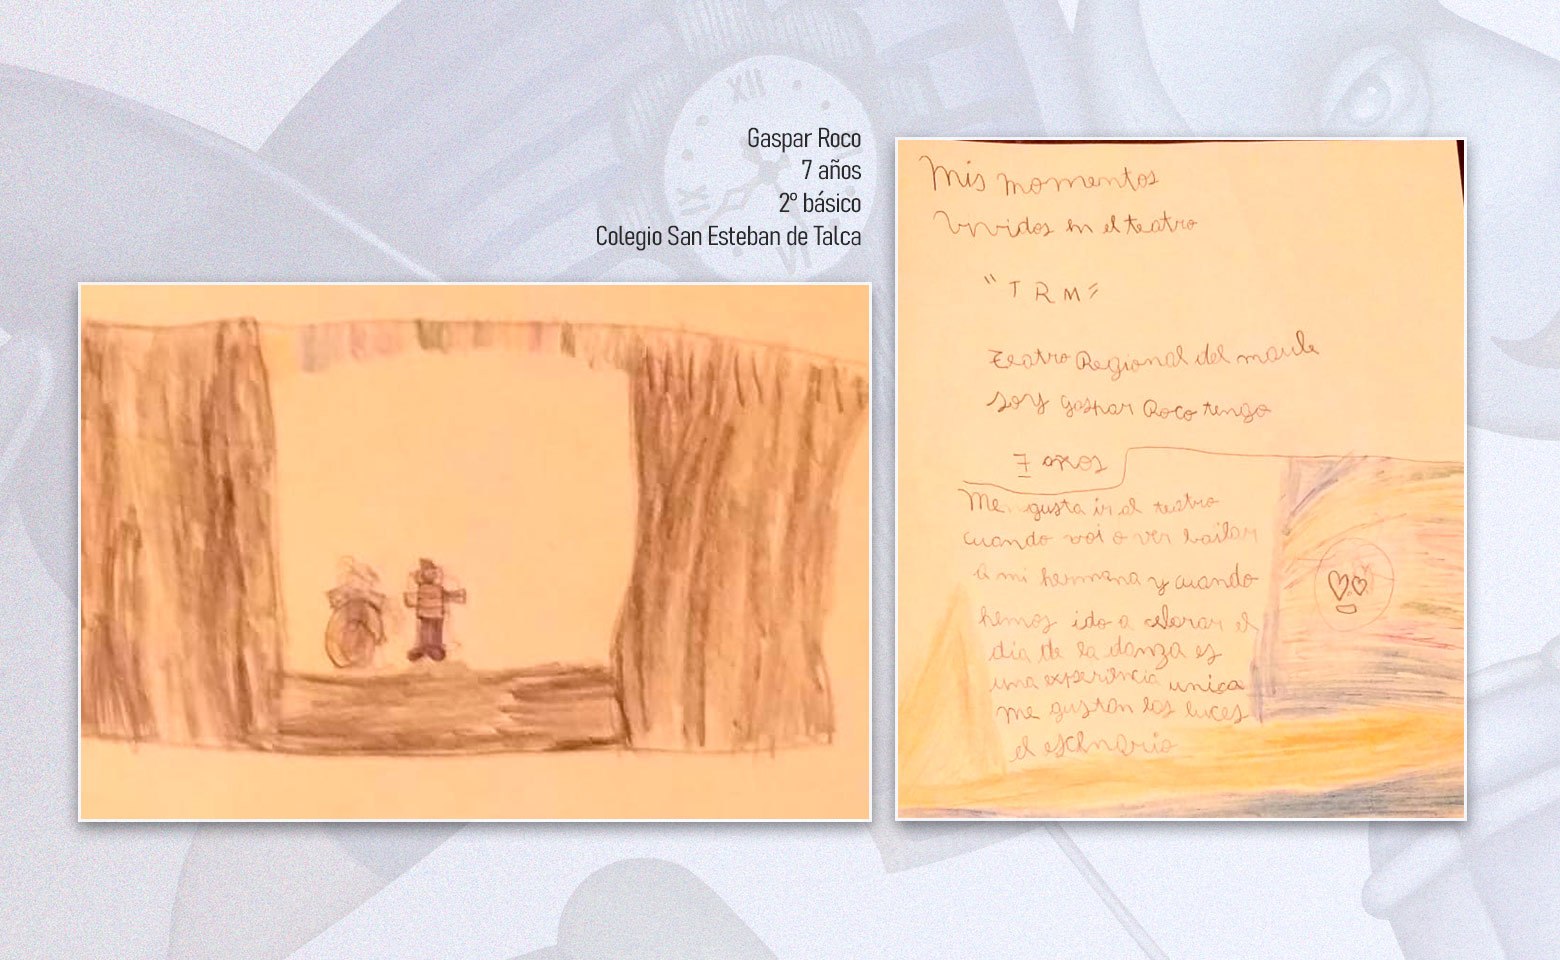 Gaspar Roco
7 años
2º básico
Colegio San Esteban de Talca
Mis momentos
Vividos en el teatro
"TRM"
Teatro Regional del maule
soy gaspar Roco tengo
7 años
Me gusta ir al teatro
cuando voi a ver bailar
a mi hermana y cuando
hemos ido a celerar el
día de la danza es
una experiencia unica
me gustan las luces
el escenario
XII
IX
VI